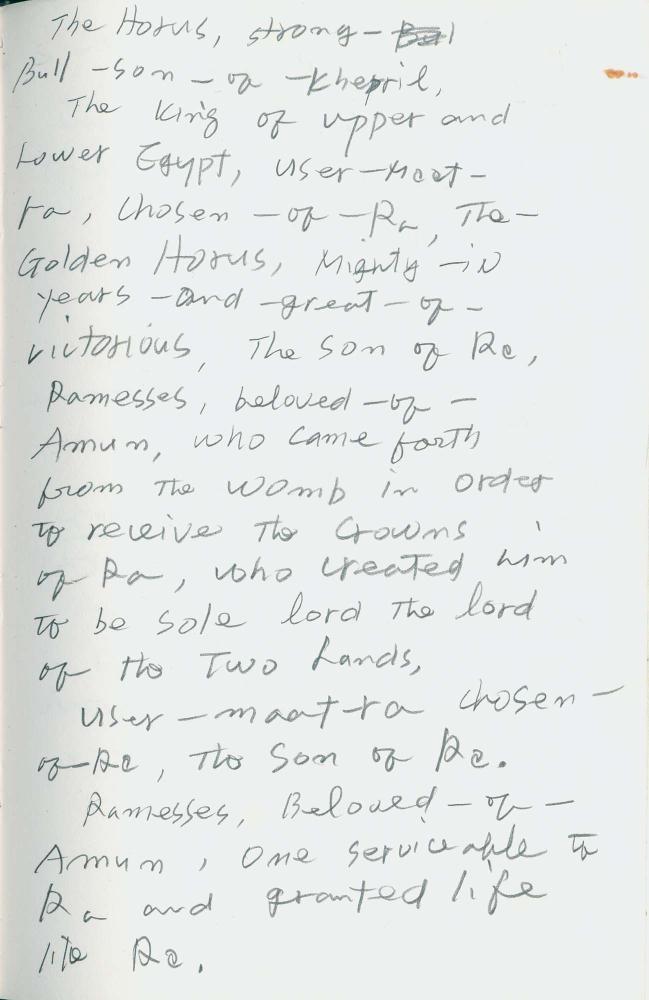 The Horus, strong-
Bull -son - of -Khepril,
The King of upper and
Lower Egypt, user-Maat-
ra, chosen -of -Ra, The-
Golden Horus, Mighty -in
years -and -great - of -
victorious, The son of Re,
Ramesses, beloved -of -
Amun, who came forth
from The womb in order
to receive the Crowns
of Ra, who created him
to be sole lord The lord
of the Two Lands,
User -maat-ra chosen-
of-Re, the son of Re.
Ramesses, Beloved - of -
Amun, One serviceable to
Ra and granted life
like Re.